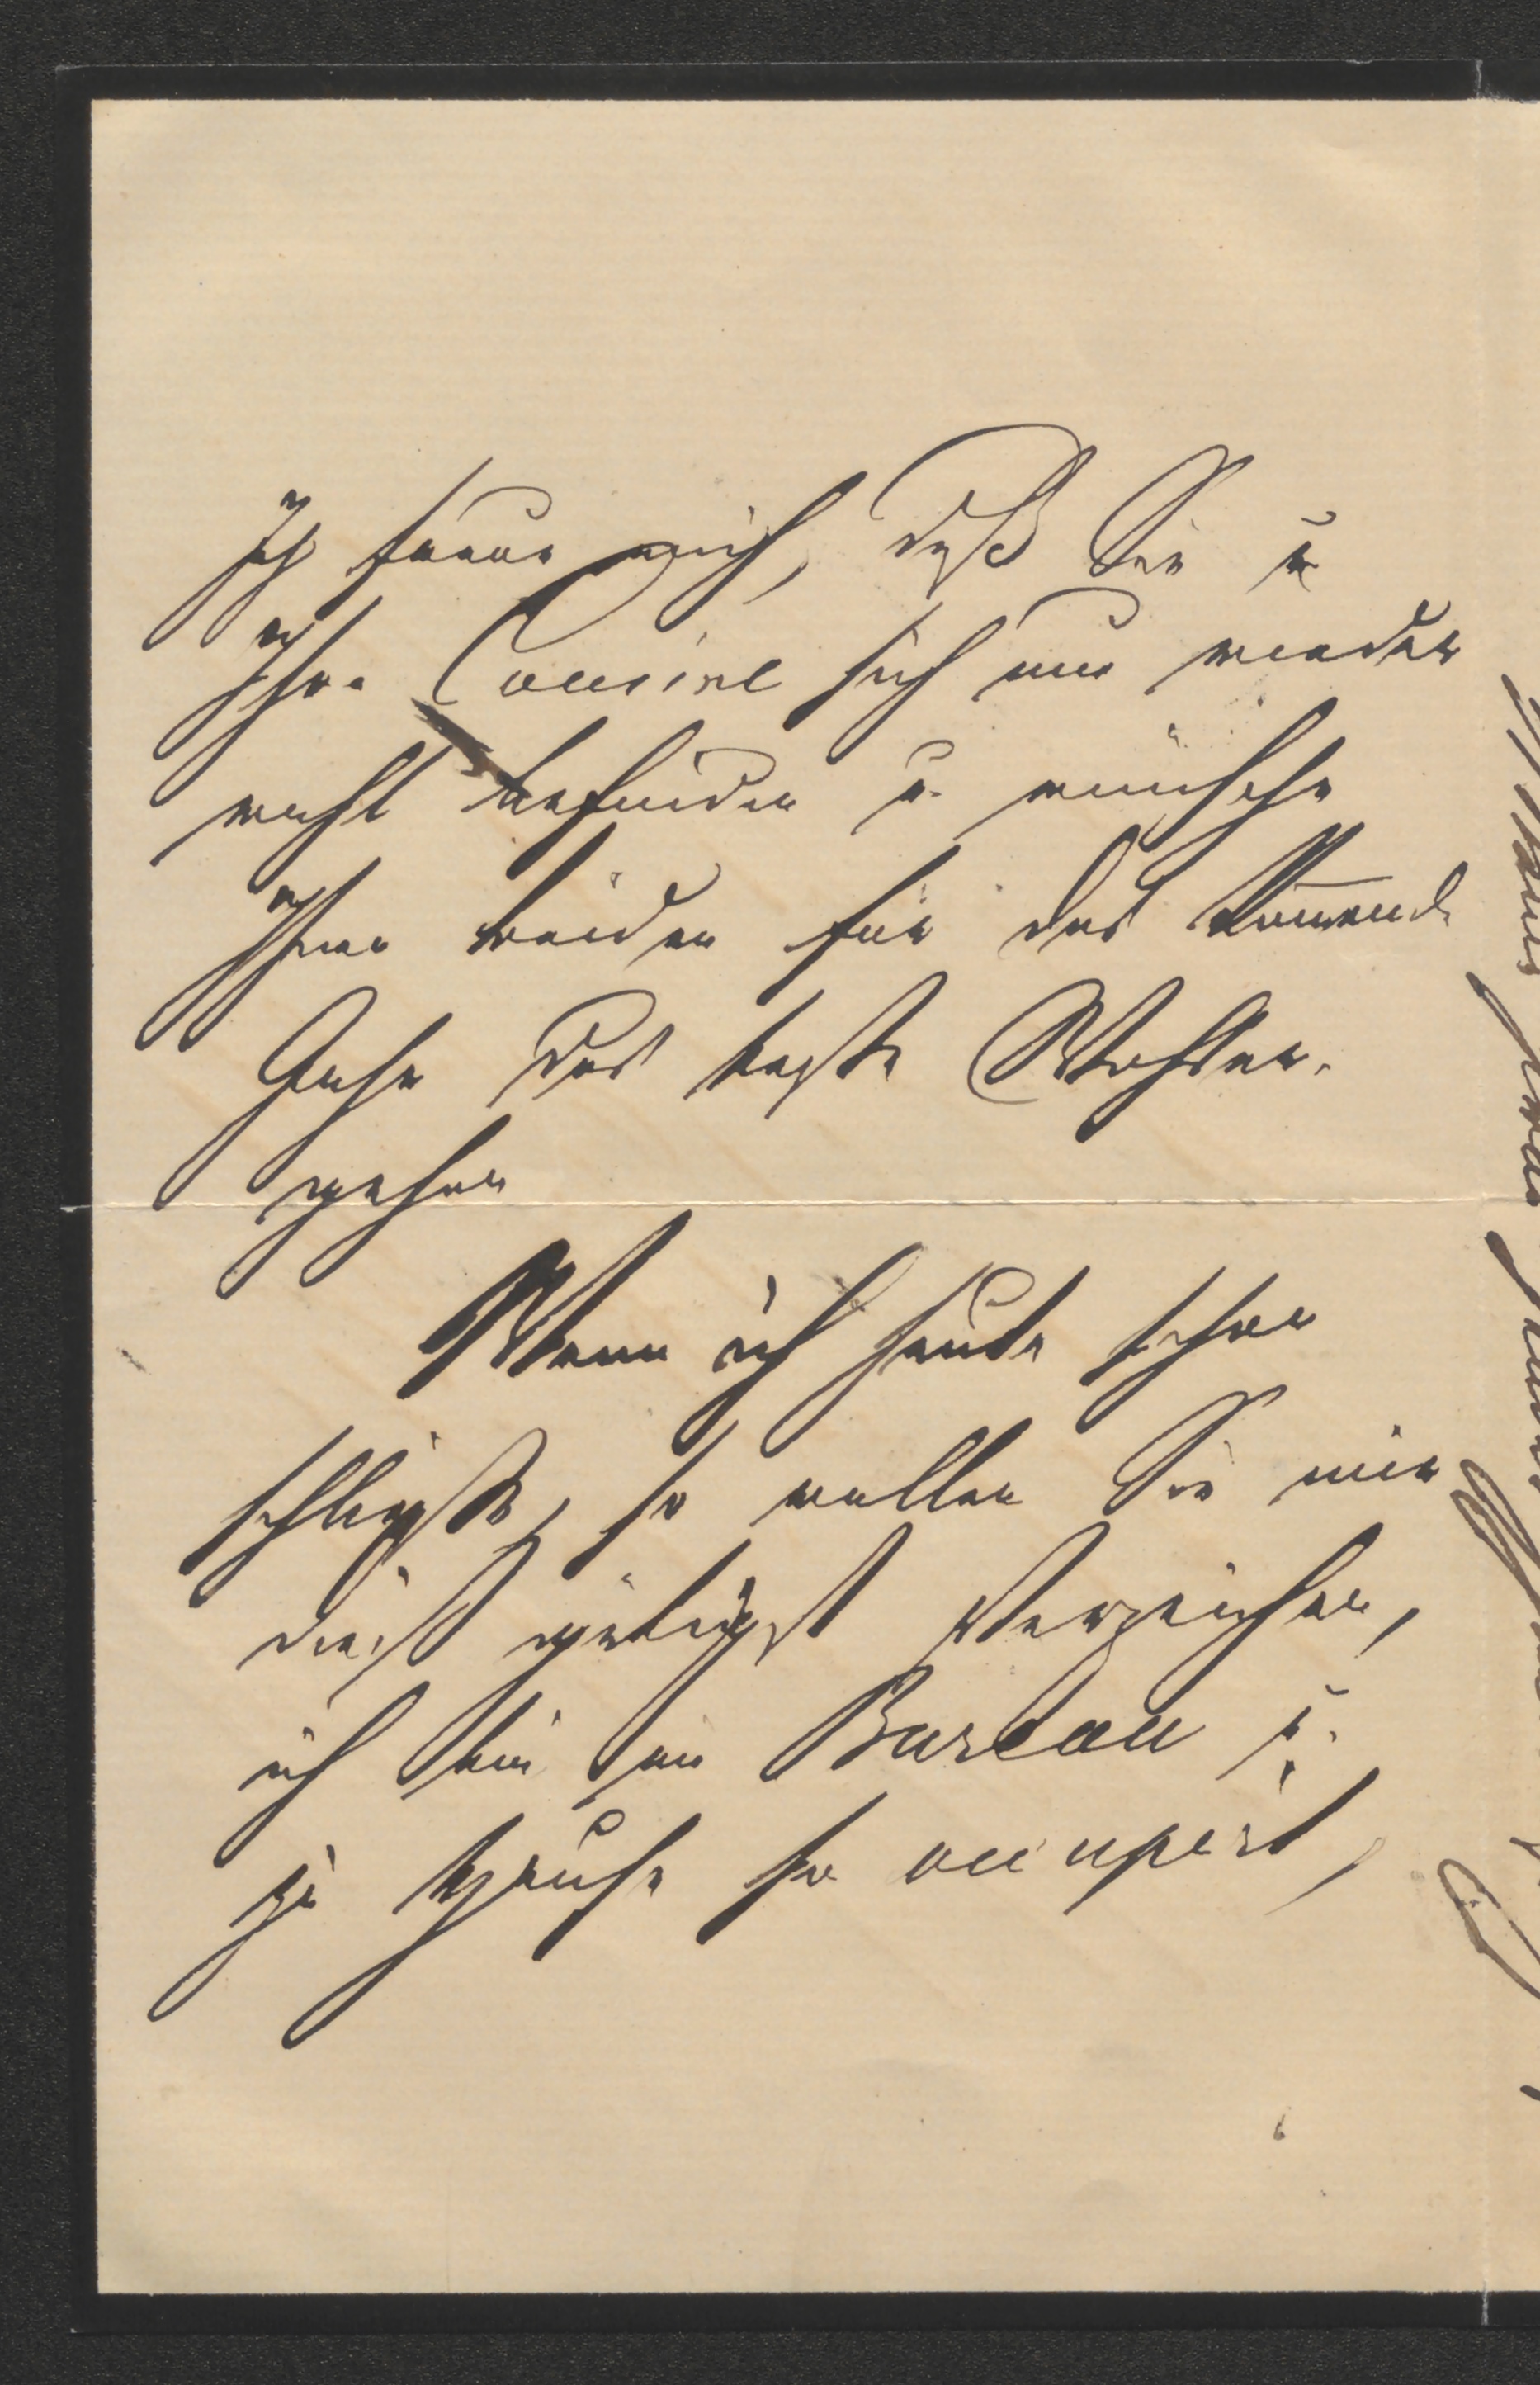 Ich freue mich, daß Sie u
Ihre Cousine sich nun wieder
wohl befinden u. wünsche
Ihnen beiden für das kom̅ende
Jahr das beste Wohler-
gehen
Wenn ich heute schon
schließe, so wollen Sie mir
dieß gütigst verzeihen,
ich bin im Bureau u.
zu Hause so occupirt,